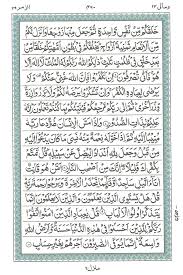 ومالی ٢٣ الزمر ٣٩
خَلَقَكُمْ مِّنْ نَّفْسٍ وَّاحِدَةٍ ثُمَّ جَعَلَ مِنْهَا زَوْجَهَا وَاَنْزَلَ لَكُمْ
مِّنَ الْاَنْعَامِ ثَمٰنِيَةَ اَزْوَاجٍ يَخْلُقُكُمْ فِيْ بُطُوْنِ اُمَّهٰتِكُمْ خَلْقًا مِّنْ
بَعْدِ خَلْقٍ فِيْ ظُلُمٰتٍ ثَلٰثٍ ذٰلِكُمُ اللّٰهُ رَبُّكُمْ لَهُ الْمُلْكُ لَآ اِلٰهَ اِلَّا
هُوَ فَاَنّٰى تُصْرَفُوْنَ اِنْ تَكْفُرُوْا فَاِنَّ اللّٰهَ غَنِيٌّ عَنْكُمْ وَلَا يَرْضٰى
لِعِبَادِهِ الْكُفْرَ وَاِنْ تَشْكُرُوْا يَرْضَهُ لَكُمْ وَلَا تَزِرُ وَازِرَةٌ وِّزْرَ
اُخْرٰى ثُمَّ اِلٰى رَبِّكُمْ مَّرْجِعُكُمْ فَيُنَبِّئُكُمْ بِمَا كُنْتُمْ تَعْمَلُوْنَ اِنَّهٗ
عَلِيْمٌۢ بِذَاتِ الصُّدُوْرِ وَاِذَا مَسَّ الْاِنْسَانَ ضُرٌّ دَعَا رَبَّهٗ
مُنِيْبًا اِلَيْهِ ثُمَّ اِذَا خَوَّلَهٗ نِعْمَةً مِّنْهُ نَسِيَ مَا كَانَ يَدْعُوْٓا اِلَيْهِ
مِنْ قَبْلُ وَجَعَلَ لِلّٰهِ اَنْدَادًا لِّيُضِلَّ عَنْ سَبِيْلِهٖ قُلْ تَمَتَّعْ
بِكُفْرِكَ قَلِيْلًا اِنَّكَ مِنْ اَصْحٰبِ النَّارِ اَمَّنْ هُوَ قَانِتٌ اٰنَآءَ
الَّيْلِ سَاجِدًا وَّقَآئِمًا يَّحْذَرُ الْاٰخِرَةَ وَيَرْجُوْا رَحْمَةَ رَبِّهٖ
قُلْ هَلْ يَسْتَوِى الَّذِيْنَ يَعْلَمُوْنَ وَالَّذِيْنَ لَا يَعْلَمُوْنَ اِنَّمَا
يَتَذَكَّرُ اُولُوا الْاَلْبَابِ قُلْ يٰعِبَادِ الَّذِيْنَ اٰمَنُوا اتَّقُوْا
رَبَّكُمْ لِلَّذِيْنَ اَحْسَنُوْا فِيْ هٰذِهِ الدُّنْيَا حَسَنَةٌ وَاَرْضُ اللّٰهِ
وَاسِعَةٌ اِنَّمَا يُوَفَّى الصّٰبِرُوْنَ اَجْرَهُمْ بِغَيْرِ حِسَابٍ